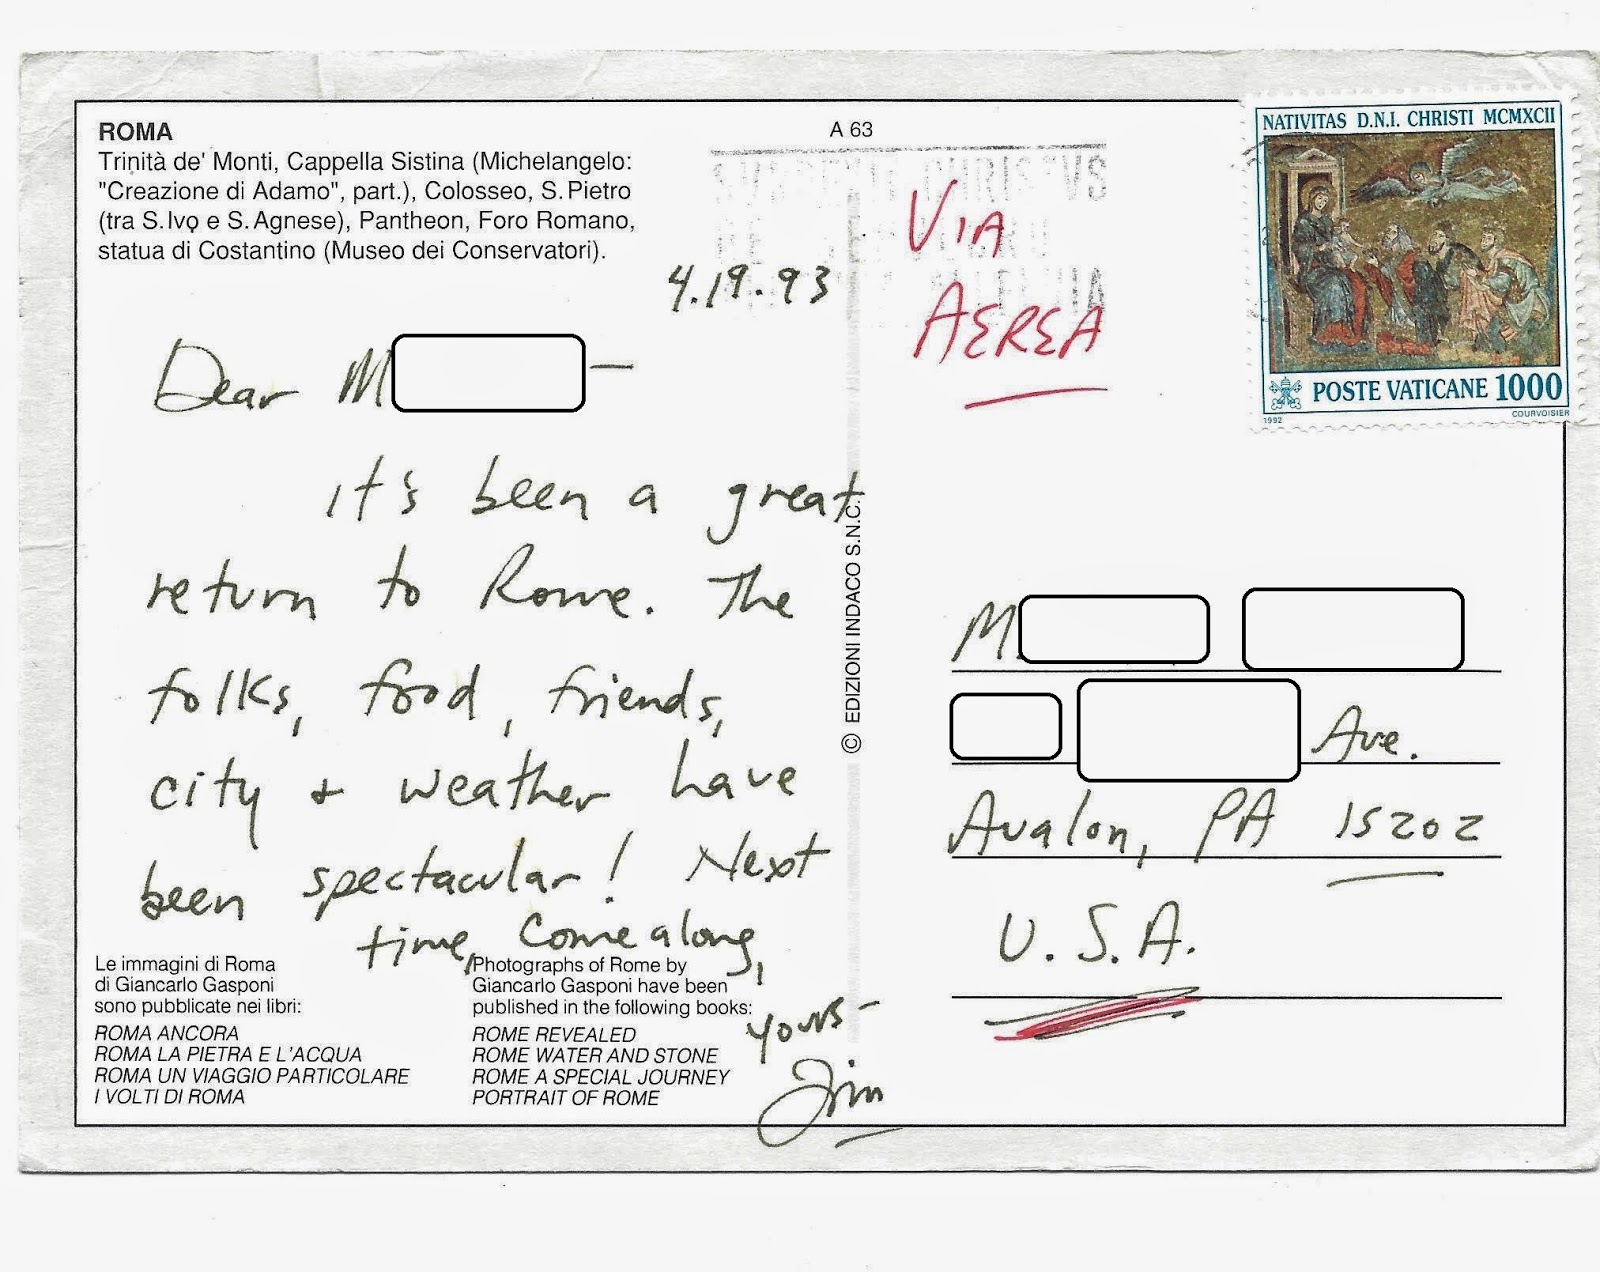 ROMA
Trinità de' Monti, Cappella Sistina (Michelangelo:
"Creazione di Adamo", part.), Colosseo, S. Pietro
(tra S. Ivo e S. Agnese), Pantheon, Foro Romano,
statua di Costantino (Museo dei Conservatori).
A 63
4.19.93
Dear M
it's been a great
return to Rome. The
folks, food, friends,
city + weather have
been spectacular! Next
time, come along,
yours-
Jim
Le immagini di Roma
di Giancarlo Gasponi
sono pubblicate nei libri:
ROMA ANCORA
ROMA LA PIETRA E L'ACQUA
ROMA UN VIAGGIO PARTICOLARE
I VOLTI DI ROMA
Photographs of Rome by
Giancarlo Gasponi have been
published in the following books:
ROME REVEALED
ROME WATER AND STONE
ROME A SPECIAL JOURNEY
PORTRAIT OF ROME
© EDIZIONI INDACO S.N.C.
VIA
AEREA
NATIVITAS D.N.I. CHRISTI MCMXCII
POSTE VATICANE 1000
1992
COURVOISIER
M
Ave.
Avalon, PA 15202
U.S.A.